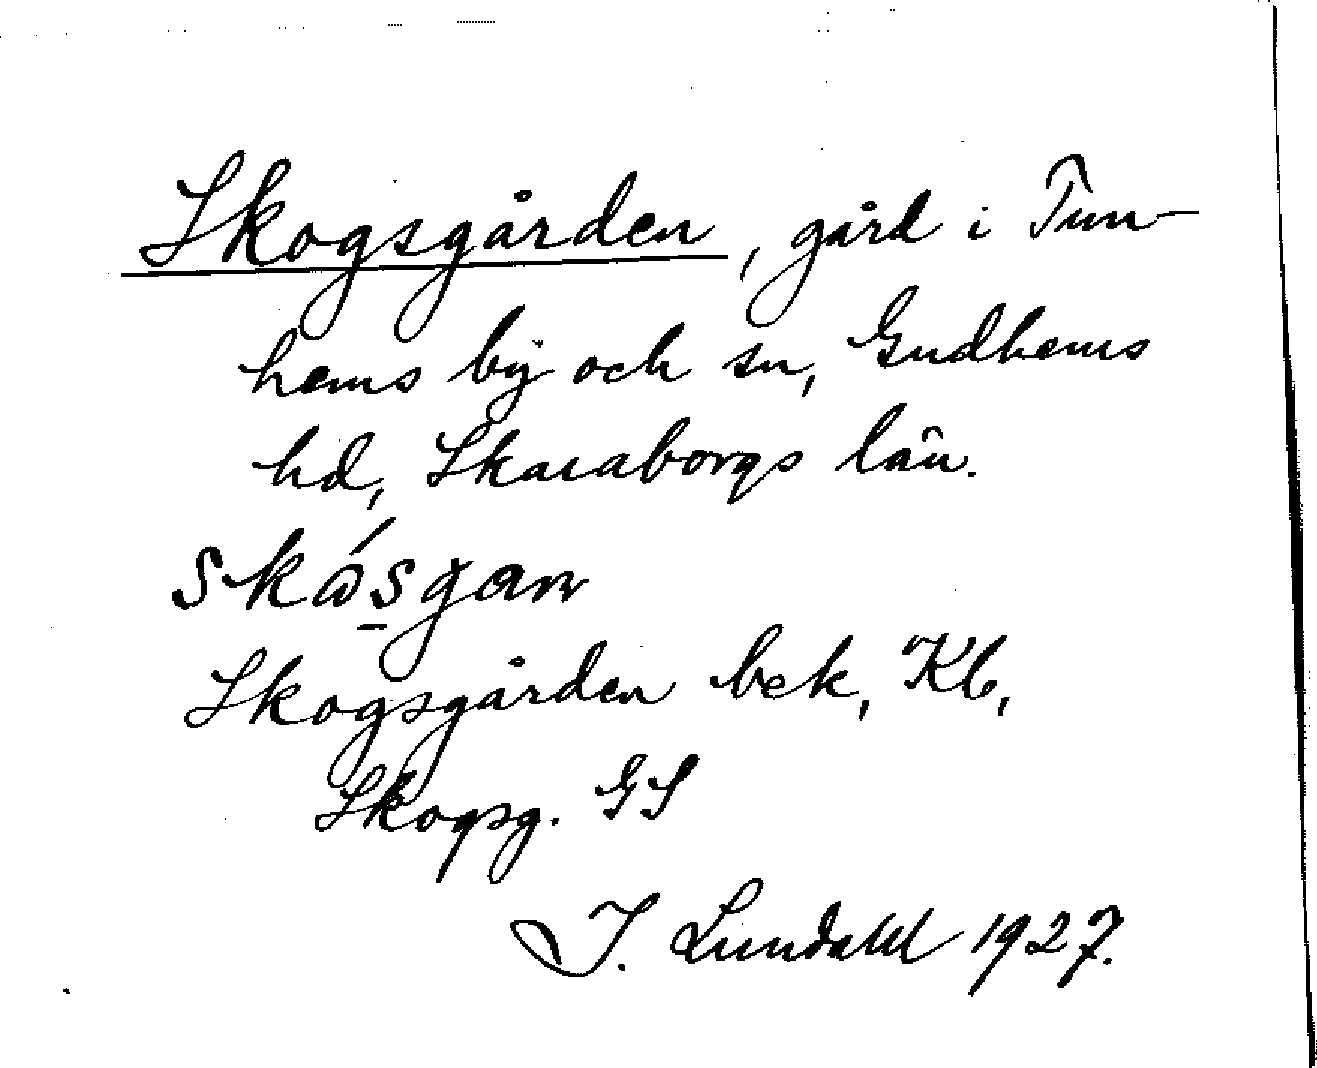 Skogsgården, gård i Tun-
hems by och sn, Gudhems
hd, Skaraborgs län.
Skogsgården bek, Kb,
Skogsg. GS
I. Lundahl 1927.